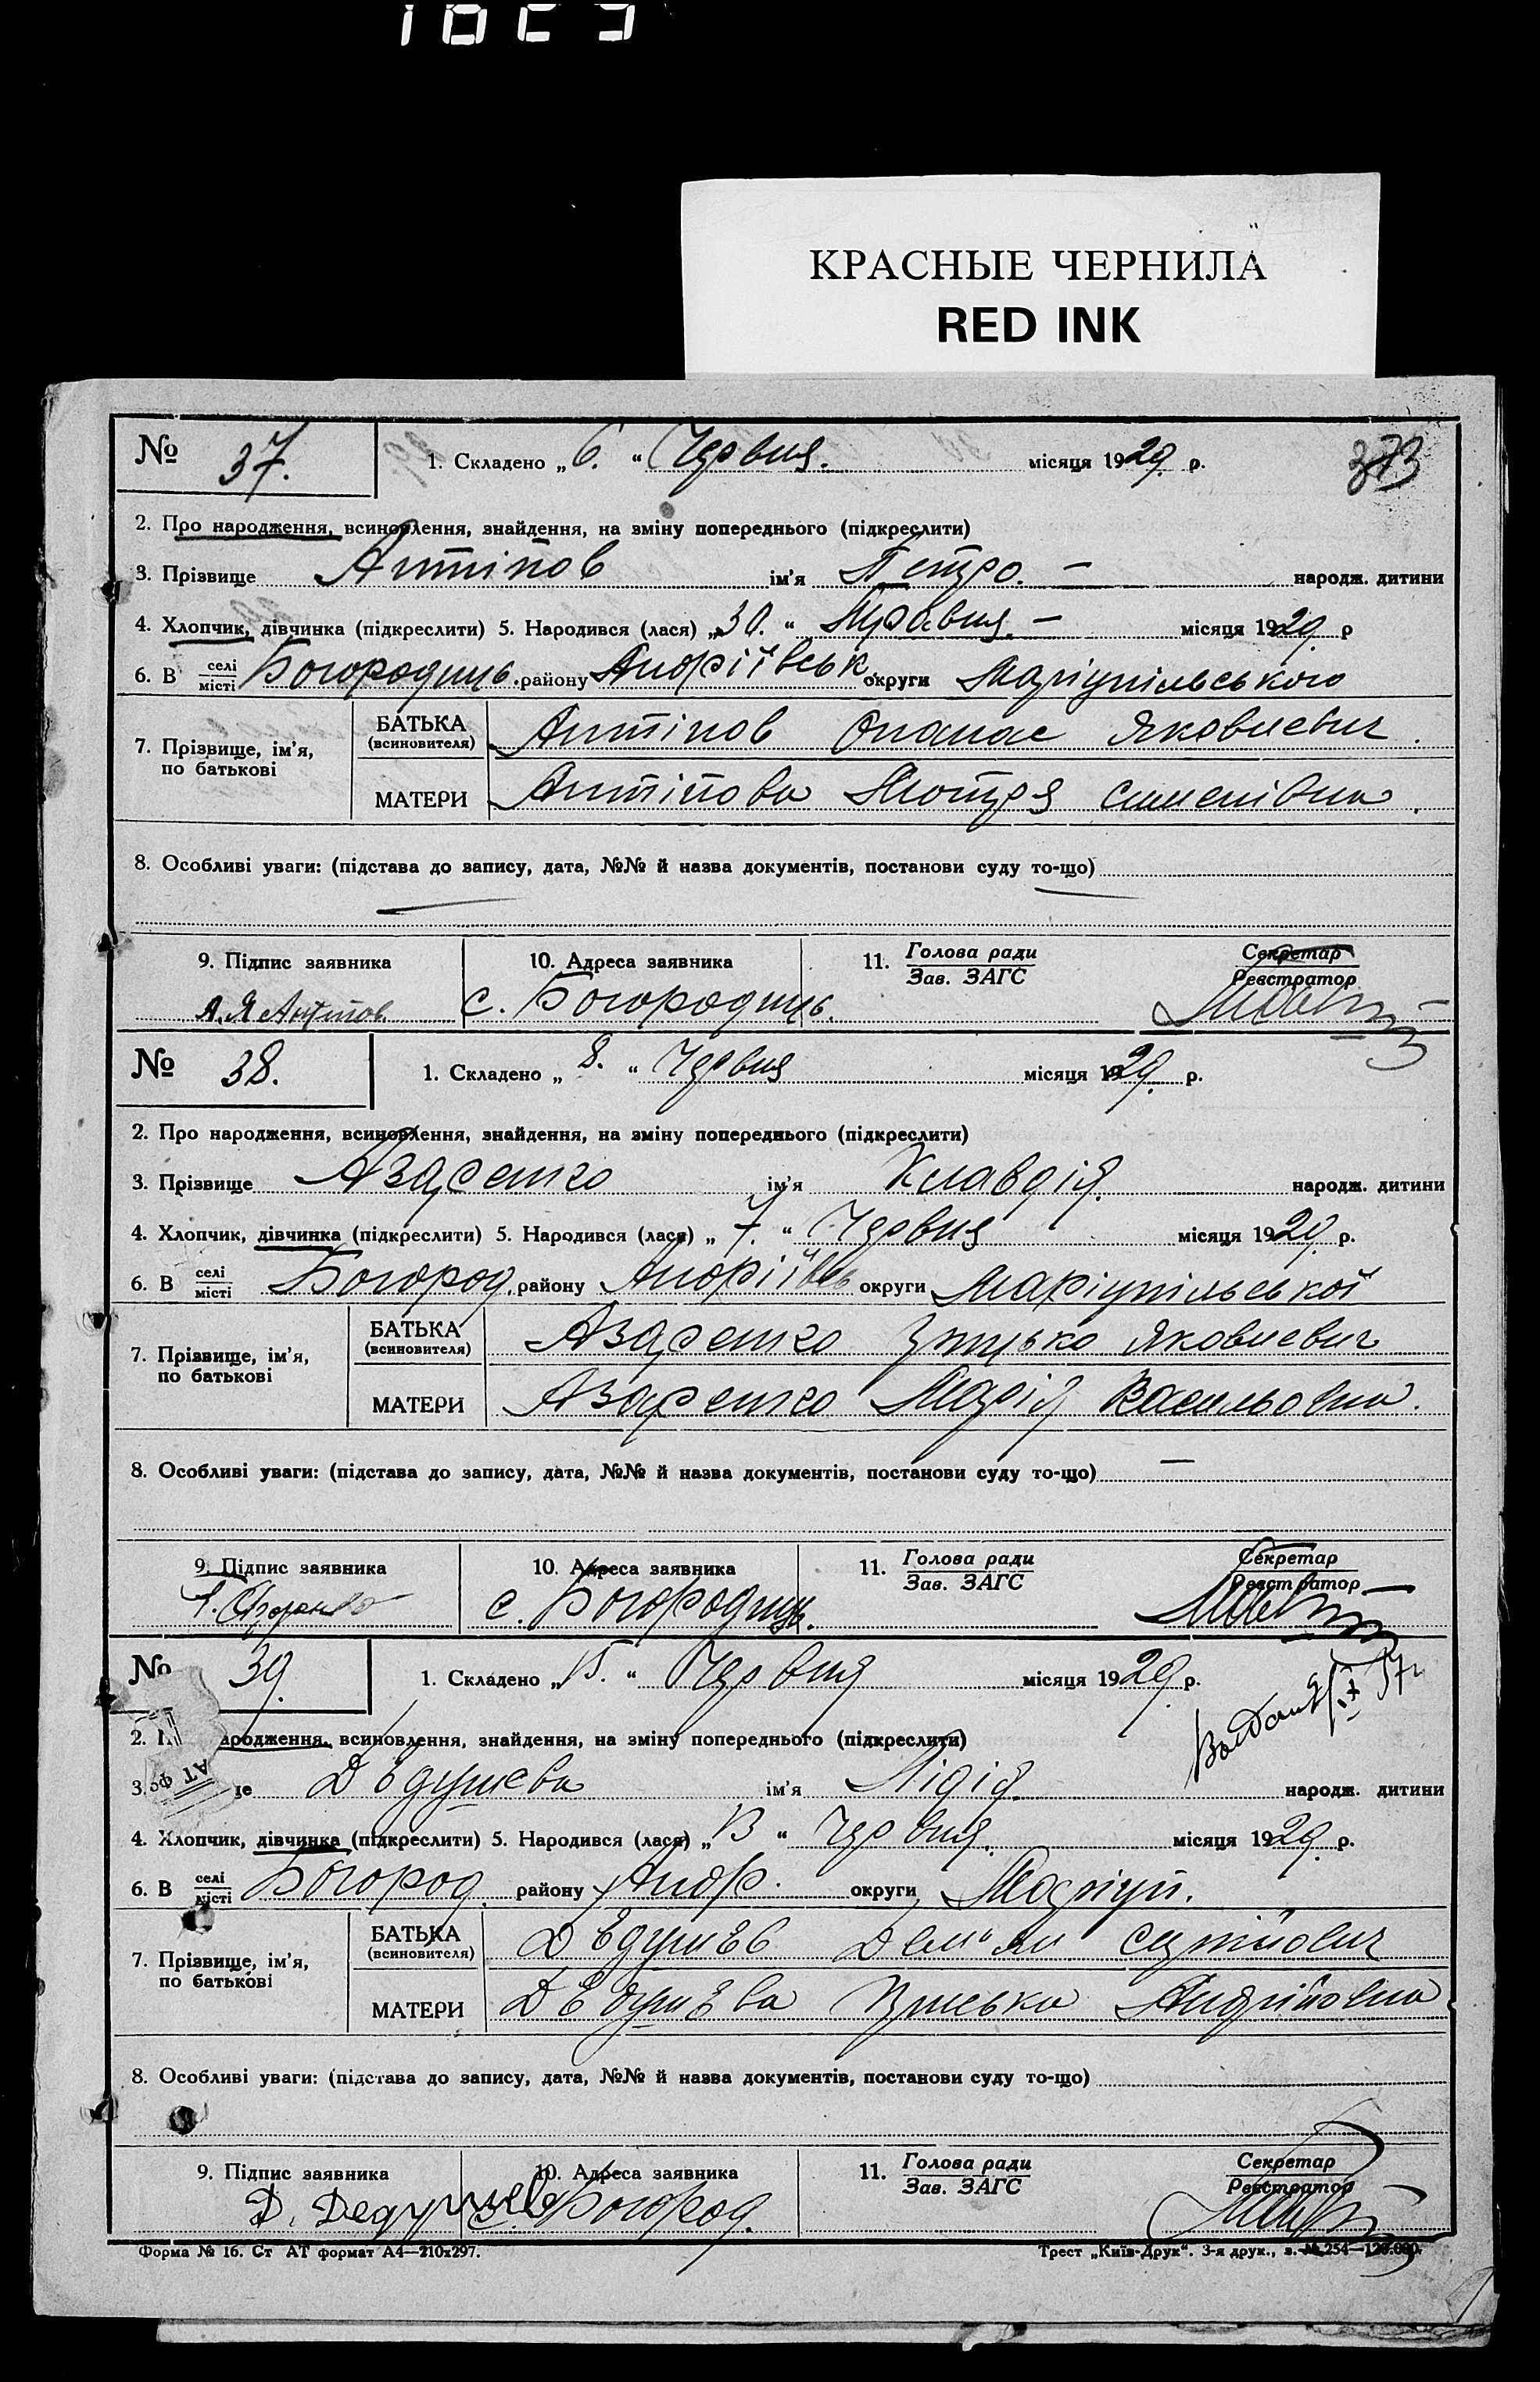 КРАСНЫЕ ЧЕРНИЛА
RED INK
№ 37. 1. Складено „ 6. “ Червня. місяця 1929. р. 373
2. Про народження, всиновлення, знайдення, на зміну попереднього (підкреслити)
3. Прізвище Антіпов ім'я Петро. — народж. дитини
4. Хлопчик, дівчинка (підкреслити) 5. Народився (лася) „ 30. “ Травня. — місяця 1929. р
6. В селі/місті Богородиць. району Андріївськ округи Маріупільського
7. Прізвище, ім'я, по батькові БАТЬКА (всиновителя) Антіпов Опанас Яковлевич.
МАТЕРИ Антіпова Мотря Сименівна.
8. Особливі уваги: (підстава до запису, дата, №№ й назва документів, постанови суду то-що)
9. Підпис заявника 10. Адреса заявника 11. Голова ради/Зав. ЗАГС Секретар/Реєстратор
А. Я Антипов с. Богородиць.
№ 38. 1. Складено „ 8. “ Червня місяця 1929. р.
2. Про народження, всиновлення, знайдення, на зміну попереднього (підкреслити)
3. Прізвище Азаренко ім'я Клавдія. народж. дитини
4. Хлопчик, дівчинка (підкреслити) 5. Народився (лася) „ 7. “ Червня місяця 1929. р.
6. В селі/місті Богород. району Андріївсь округи Маріупільської
7. Прізвище, ім'я, по батькові БАТЬКА (всиновителя) Азаренко Грицько Яковлевич
МАТЕРИ Азаренко Марія Васильовна.
8. Особливі уваги: (підстава до запису, дата, №№ й назва документів, постанови суду то-що) —
9. Підпис заявника 10. Адреса заявника 11. Голова ради/Зав. ЗАГС Секретар/Реєстратор
Г. Азаренко с. Богородиць.
№ 39. 1. Складено „ 15. “ Червня місяця 1929. р.
2. народження, всиновлення, знайдення, на зміну попереднього (підкреслити)
3. Дѣдушева ім'я Лідія. народж. дитини
4. Хлопчик, дівчинка (підкреслити) 5. Народився (лася) „ 13 “ Червня. місяця 1929. р.
6. В селі/місті Богород. району Андр. округи Маріуп.
7. Прізвище, ім'я, по батькові БАТЬКА (всиновителя) Дѣдушѣв Дем'ян
МАТЕРИ Дѣдушѣва Андрійовна
8. Особливі уваги: (підстава до запису, дата, №№ й назва документів, постанови суду то-що)
9. Підпис заявника 10. Адреса заявника 11. Голова ради/Зав. ЗАГС Секретар/Реєстратор
Д. Дедушев с. Богород.
Форма № 16. Ст АТ формат А4—210x297. Трест „Київ-Друк“. 3-я друк., з. № 254—120.000.